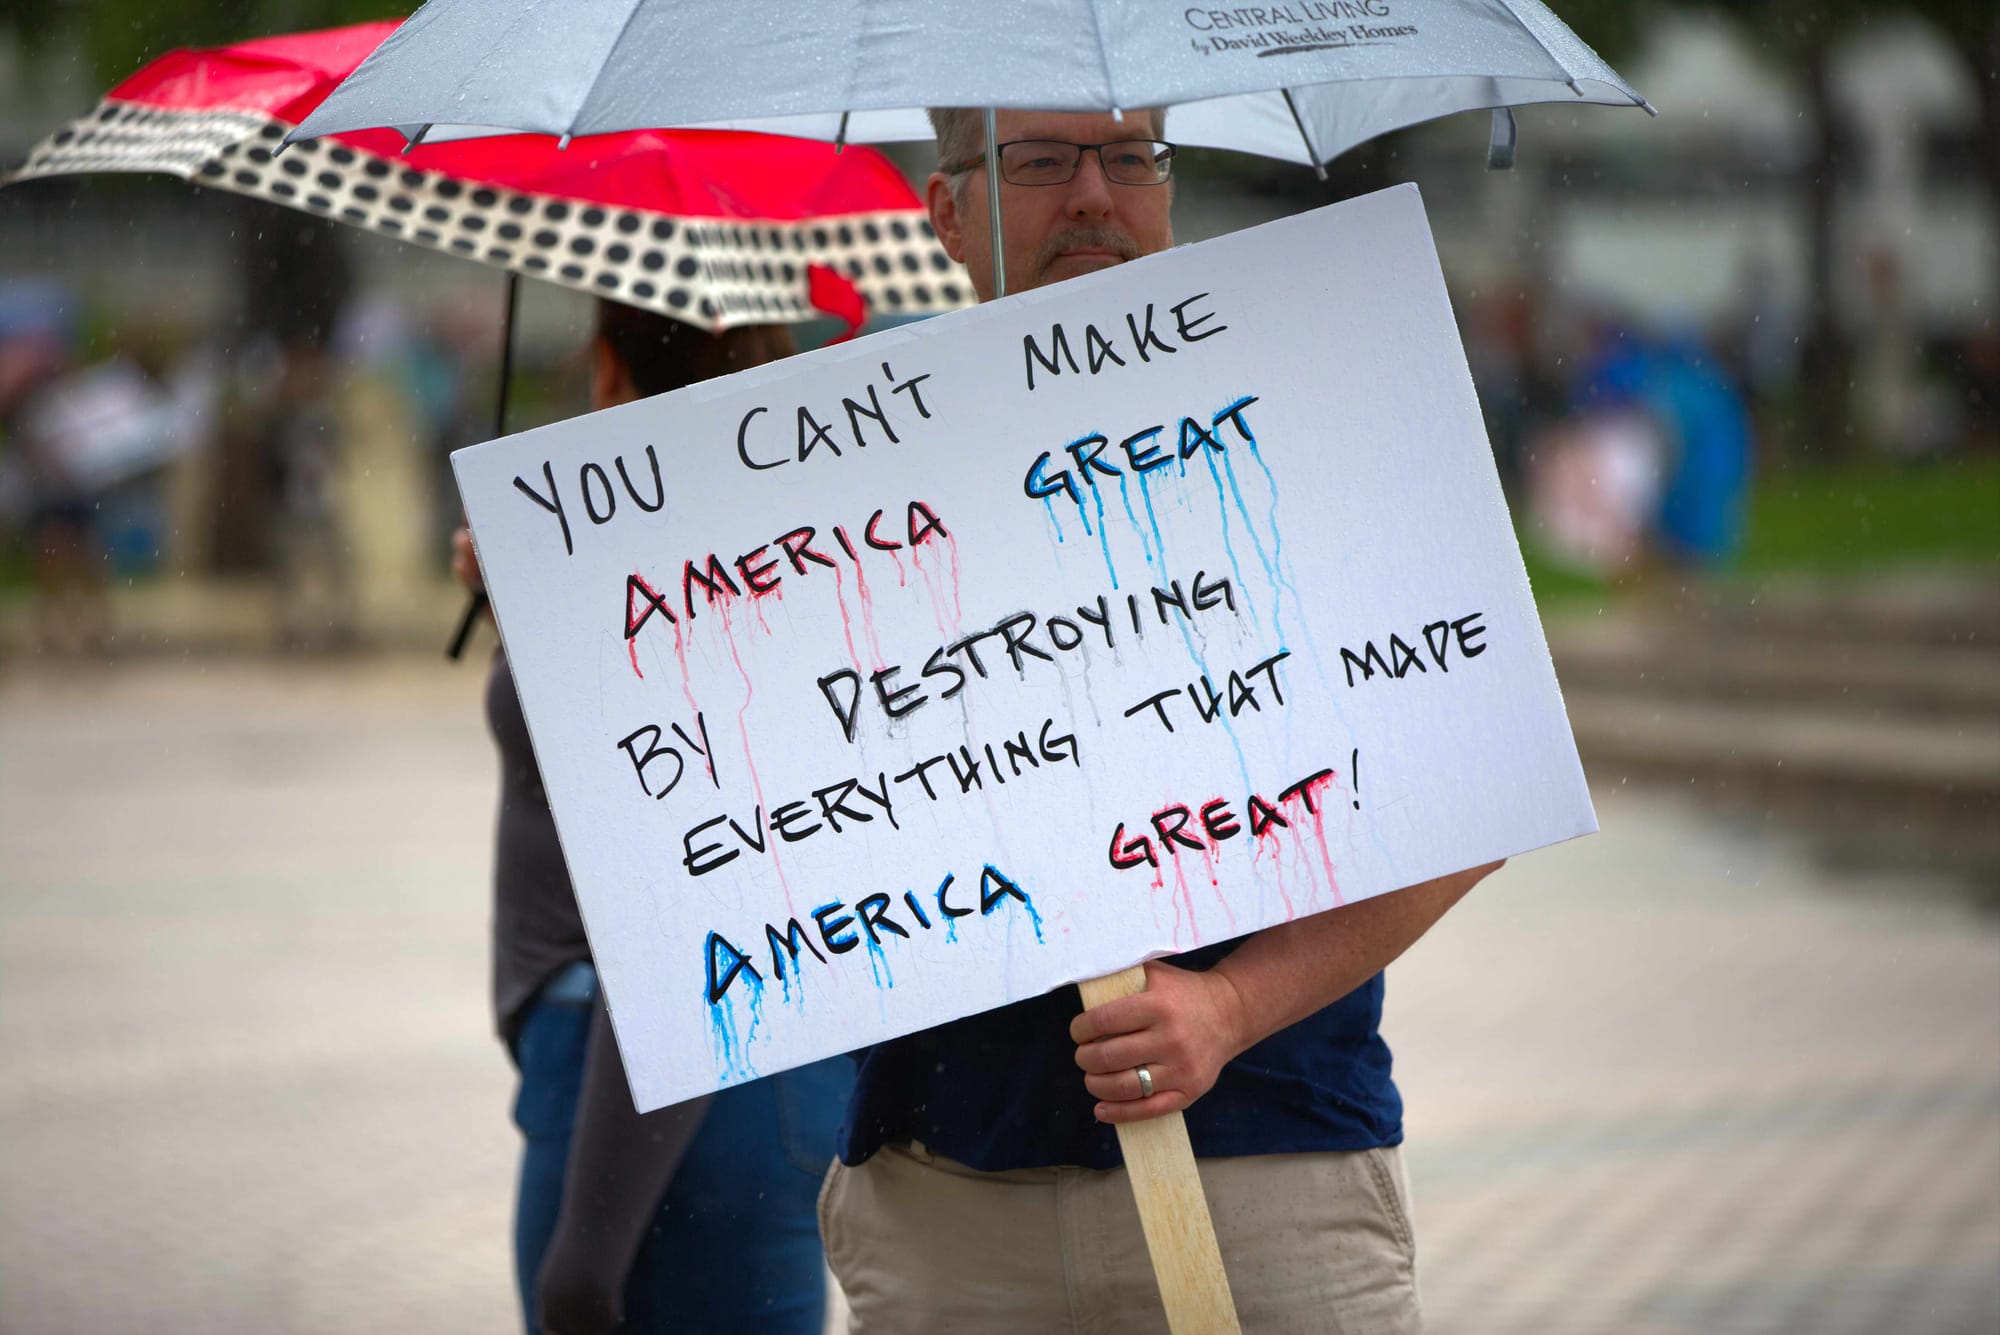 CENTRAL LIVING
by David Weekley Homes
YOU CAN'T MAKE
AMERICA GREAT
BY DESTROYING
EVERYTHING THAT MADE
AMERICA GREAT!